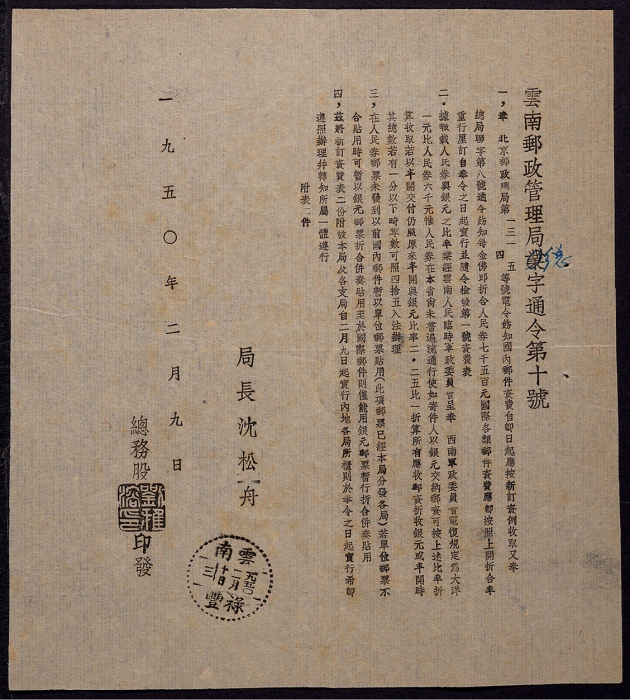 雲南郵政管理局業字通令第十號
一，奉 北京郵政總局第一三一四五等號電令飭知國內郵件資費自即日起應按新訂資例收取又奉
總局聯字第八號通令飭知每金佛郎折合人民券七千五百元國際各類郵件資費應即按照上開折合率
重行厘訂自奉令之日起實行並隨令檢發第一號資費表
二．據報載人民券與銀元之比率業經雲南人民臨時軍政委員會呈奉 西南軍政委員會電復規定為大洋
一元比人民券六千元惟人民券在本省尚未普遍流通行使如寄件人以銀元交納郵資可按上述比率折
算收取若以半開交付仍照原來半開與銀元比率二．二五比一折算所有應收郵資折收銀元或半開時
其總數若有一分以下畸零數可照四拾五入法辦理
三，在人民券郵票未發到以前國內郵件暫以單位郵票貼用(此項郵票已經本局分發各局)若單位郵票不
合貼用時可暫以銀元郵票折合併湊貼用至於國際郵件則僅能用銀元郵票暫行折合併湊貼用
四，茲將新訂資費表二份附發本局及各支局自二月九日起實行內地各局所櫃則於奉令之日起實行希即
遵照辦理并轉知所屬一體遵行
附表二件
局長沈松舟
一九五〇年二月九日
總務股
印發
雲南
一九五〇
二月
廿三
祿豐